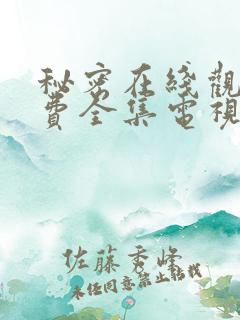 秘密在綫觀
費全集電視
佐藤秀峰
未經同意禁止轉載